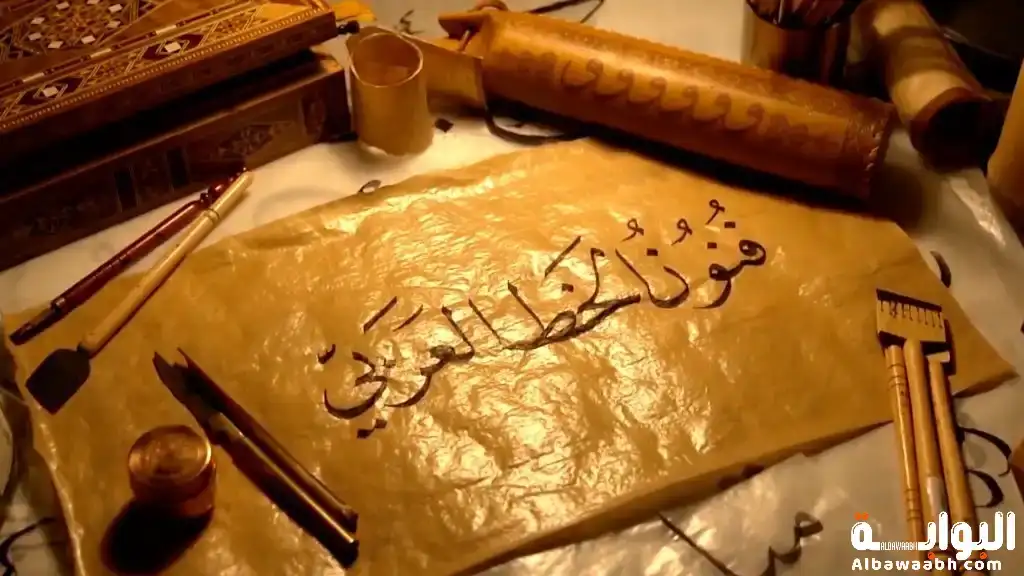 فنون الخط العربي
البوابة
ALBAWAABH
Albawaabh.com